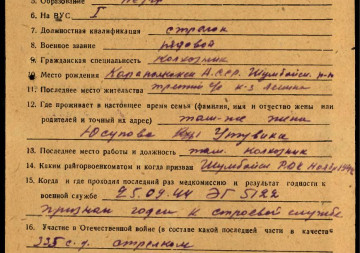 5. Образование
6. На ВУС I
7. Должностная квалификация стрелок
8. Военное звание рядовой
9. Гражданская специальность колхозник
10. Место рождения
11. Последнее место жительства к-з Ленина
12. Где проживает в настоящее время семья (фамилия, имя и отчество жены или
родителей и точный их адрес) там-же жена
Юсупова
13. Последнее место работы и должность там. колхозник
14. Каким райгорвоенкоматом и когда призван РВК
15. Когда и где проходил последний раз медкомиссию и результат годности к
военной службе 25.09.44 ЭГ 5122
признан годен к строевой службе
16. Участие в Отечественной войне (в составе какой последней части и в качестве
с.д. стрелком